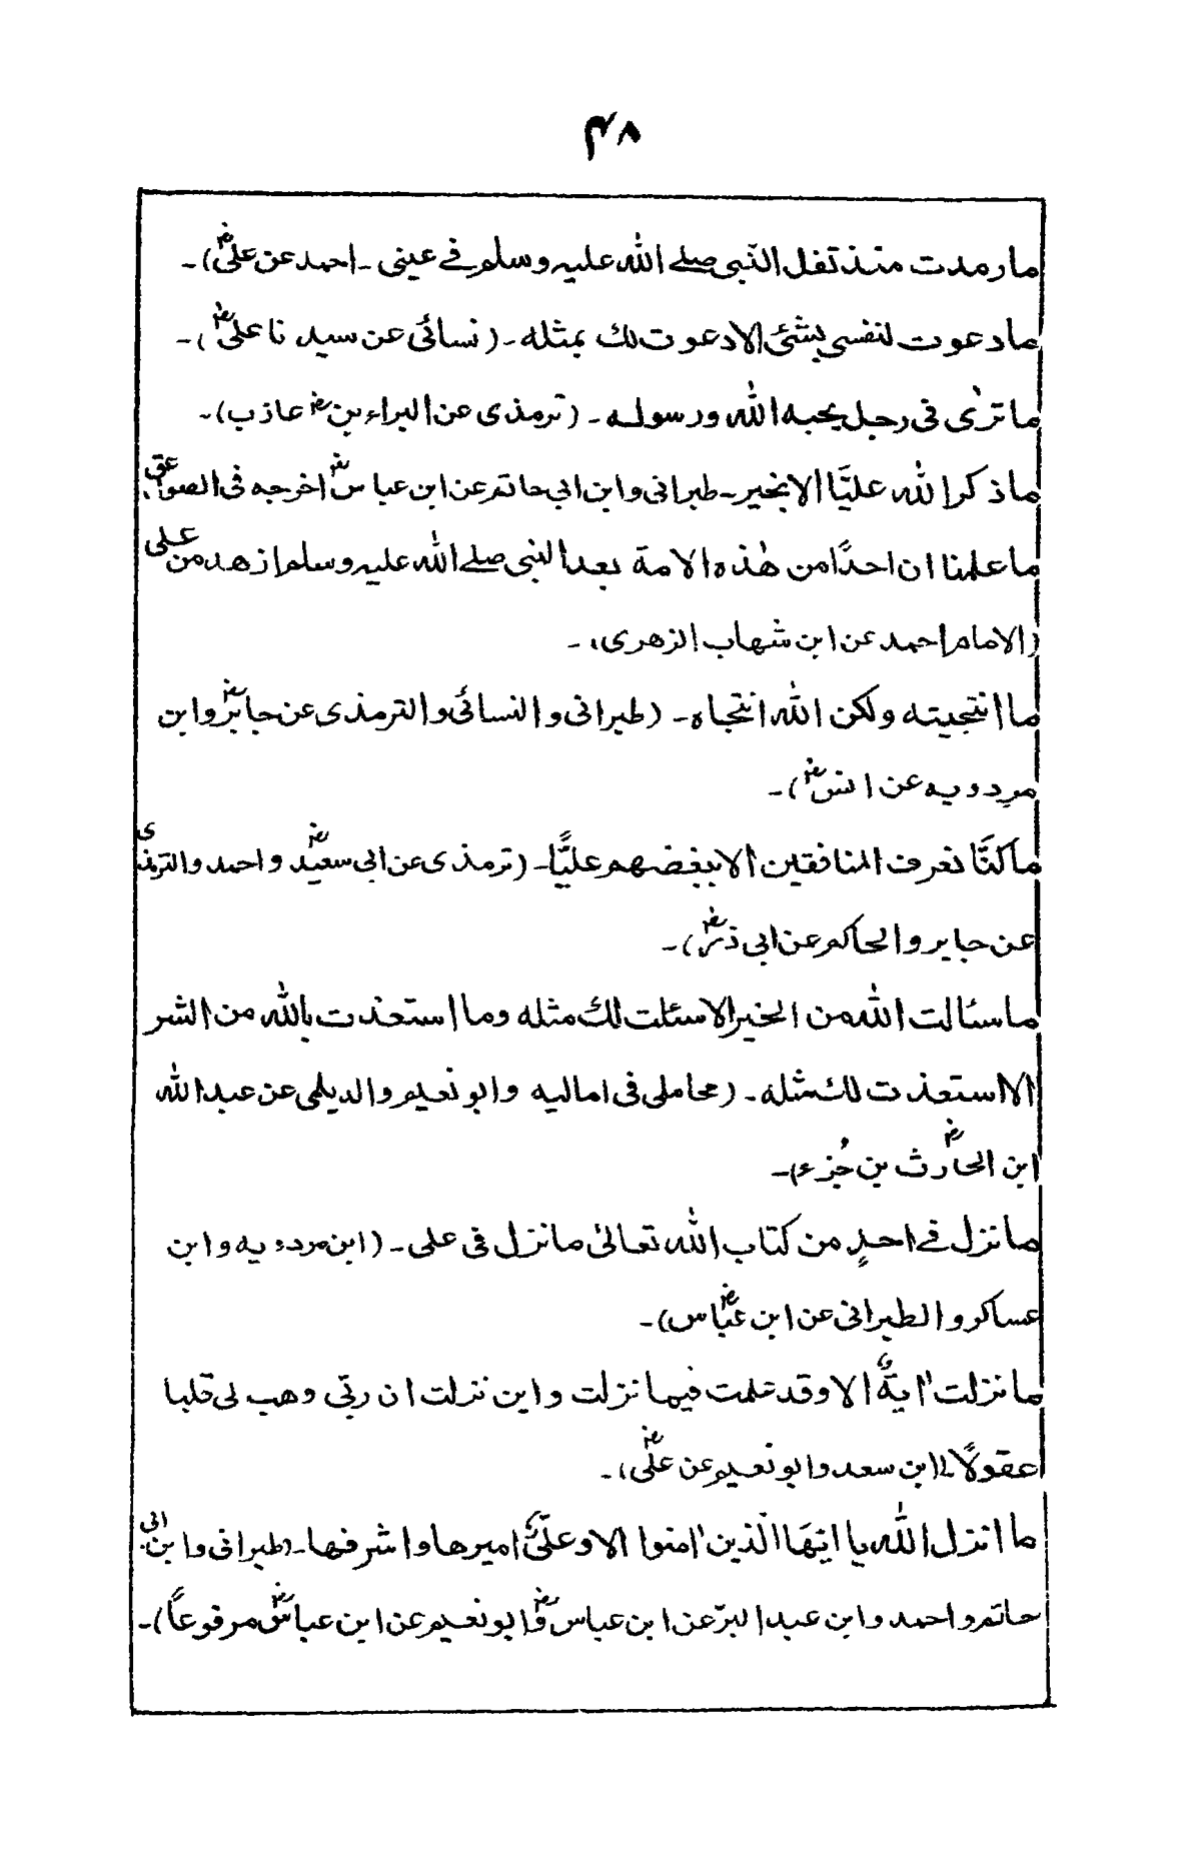 ۴۸
ما رمدت منذ تفل النّبی صلے اللّٰہ علیہ وسلم فے عینی ۔ احمد عن علیؓ)۔
ما دعوت لنفسی بشئی الا دعوت لك بمثله ۔ (نسائی عن سیدنا علیؓ)۔
ما ترٰی فی رجل یحبه اللّٰه ورسوله ۔ (ترمذی عن البراء بنؓ عازب)۔
ما ذکر اللّٰه علیًّا الا بخیر ۔ طبرانی وابن ابی حاتم عن ابن عباسؓ اخرجه فی الصواعق
ما علمنا ان احدًا من هٰذه الامة بعد النبی صلے اللّٰه علیہ وسلم ازهد من علی
(الامام احمد عن ابن شهاب الزهری)۔
ما انتجیته ولکن اللّٰه انتجاه ۔ (طبرانی والنسائی والترمذی عن جابرؓ وابن
مردویه عن انسؓ)۔
ما کنّا نعرف المنافقین الا ببغضهم علیًّا ۔ (ترمذی عن ابی سعیدؓ واحمد والترمذی
عن جابر والحاکم عن ابی ذرؓ)۔
ما سئالت اللّٰه من الخیر الا سئلت لك مثله وما استعذت باللّٰه من الشر
الا استعذت لك مثله ۔ (محاملی فی امالیه وابو نعیم والدیلمی عن عبد اللّٰه
ابن الحارثؓ بن جُزء)۔
ما نزل فے احدٍ من کتاب اللّٰه تعالیٰ ما نزل فی علی ۔ (ابن مردویه وابن
عساکر والطبرانی عن ابن عبّاسؓ)۔
ما نزلت اٰیةٌ الا وقد علمت فیما نزلت واین نزلت ان ربّی وهب لی قلبا
عقولًا۔ (ابن سعد وابو نعیم عن علیؓ)۔
ما انزل اللّٰه یا ایّهَا الّذین اٰمنوا الا وعلیٌّ امیرها واشرفها ۔ (طبرانی وابن ابی
حاتم واحمد وابن عبد البرّ عن ابن عباسؓ وابو نعیم عن ابن عباسؓ مرفوعاً)۔